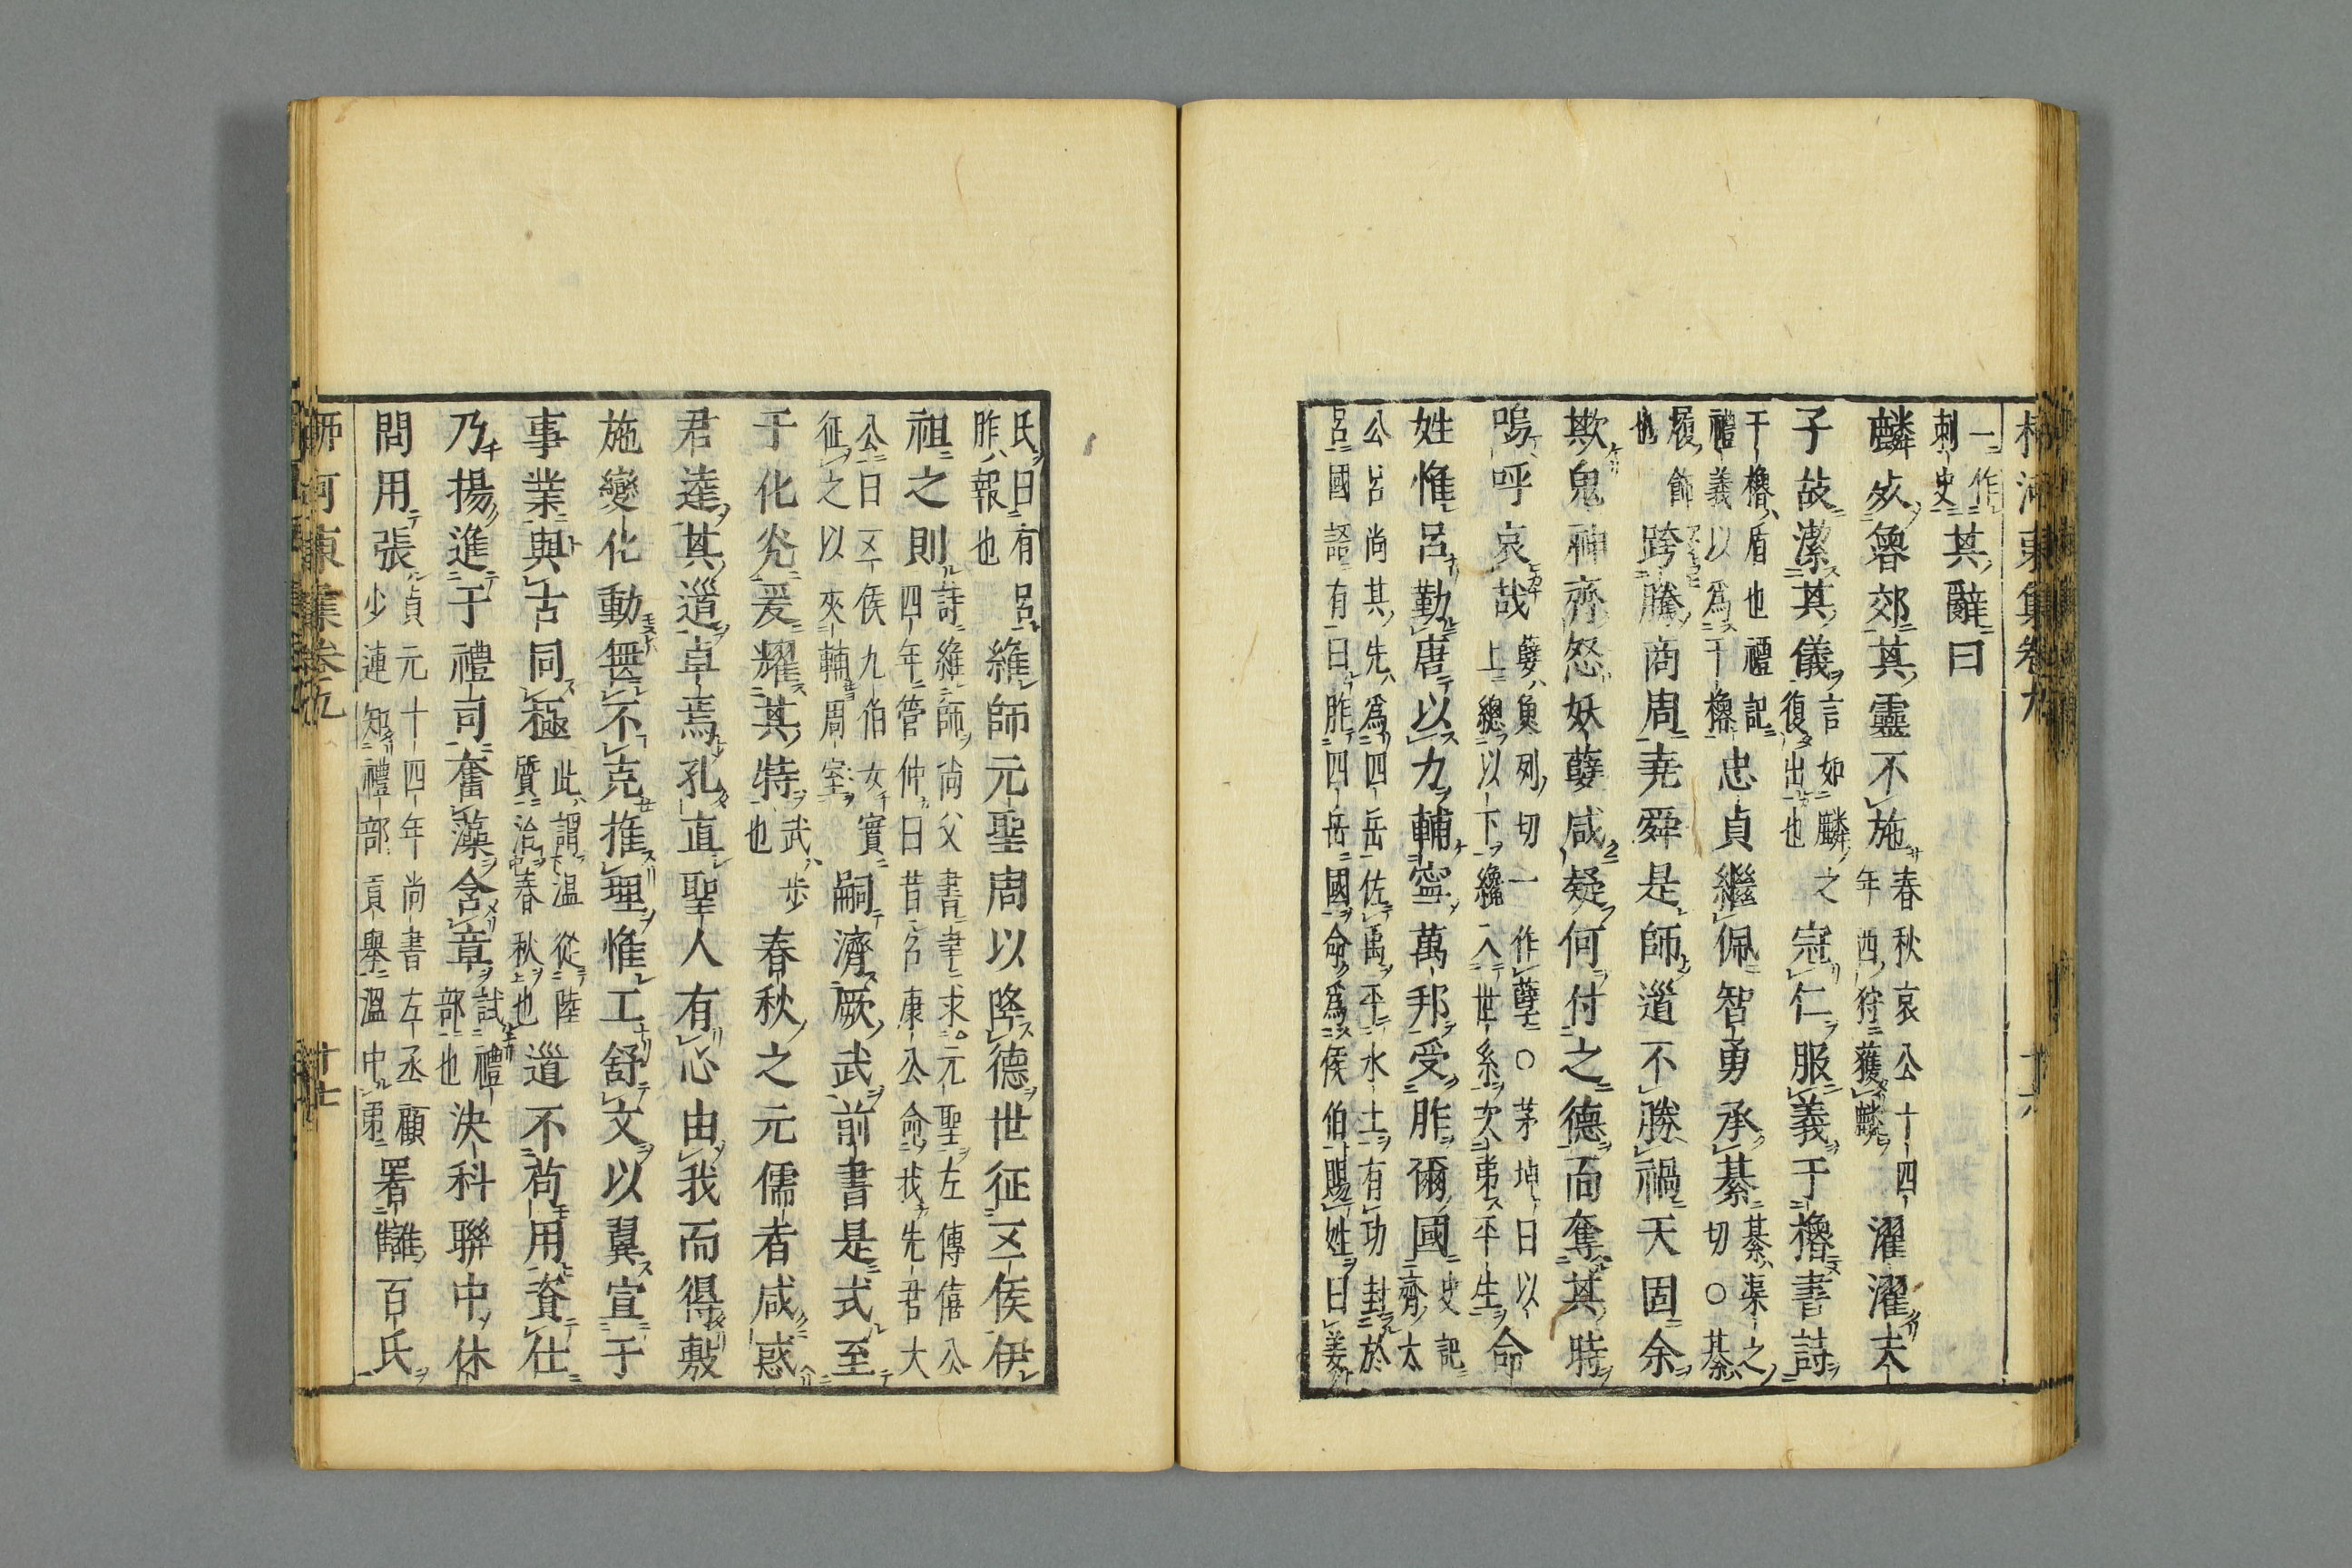 柳河東集卷九 十六
一作刺史其辭曰
麟死魯郊其靈不施春秋哀公十四年西狩獲麟濯濯夫
子故潔其儀言如麟之復出也冠仁服義干櫓書詩
干櫓盾也禮記禮義以爲干櫓忠貞繼佩智勇承綦綦渠之切○綦
履飾也跨騰商周堯舜是師道不勝禍天固余
欺鬼神齊怒妖孽咸疑何付之德而奪其時
嗚呼哀哉孽魚列切一作孼○茅坤曰以上總以下纔入世系次第平生命
姓惟呂勤唐以力輔寧萬邦受胙爾國史記齊太
公呂尚其先爲四岳佐禹平水土有功封於呂國語有曰胙四岳國命爲侯伯賜姓曰姜
氏曰有呂胙報也維師元聖周以降德世征五侯伊
祖之則詩維師尚父書聿求元聖左傳僖公四年管仲曰昔召康公命我先君大
公曰五侯九伯女實征之以夾輔周室嗣濟厥武前書是式至
于化光爰耀其特武步也春秋之元儒者咸惑
君達其道卓焉孔直聖人有心由我而得敷
施變化動無不克推理惟工舒文以翼宣于
事業與古同極此謂溫從陸質治春秋也道不苟用資仕
乃揚進于禮司奮藻含章試禮部也決科聯中休
問用張貞元十四年尚書左丞顧少連知禮部貢舉溫中第署讎百氏
柳河東集卷九 十七